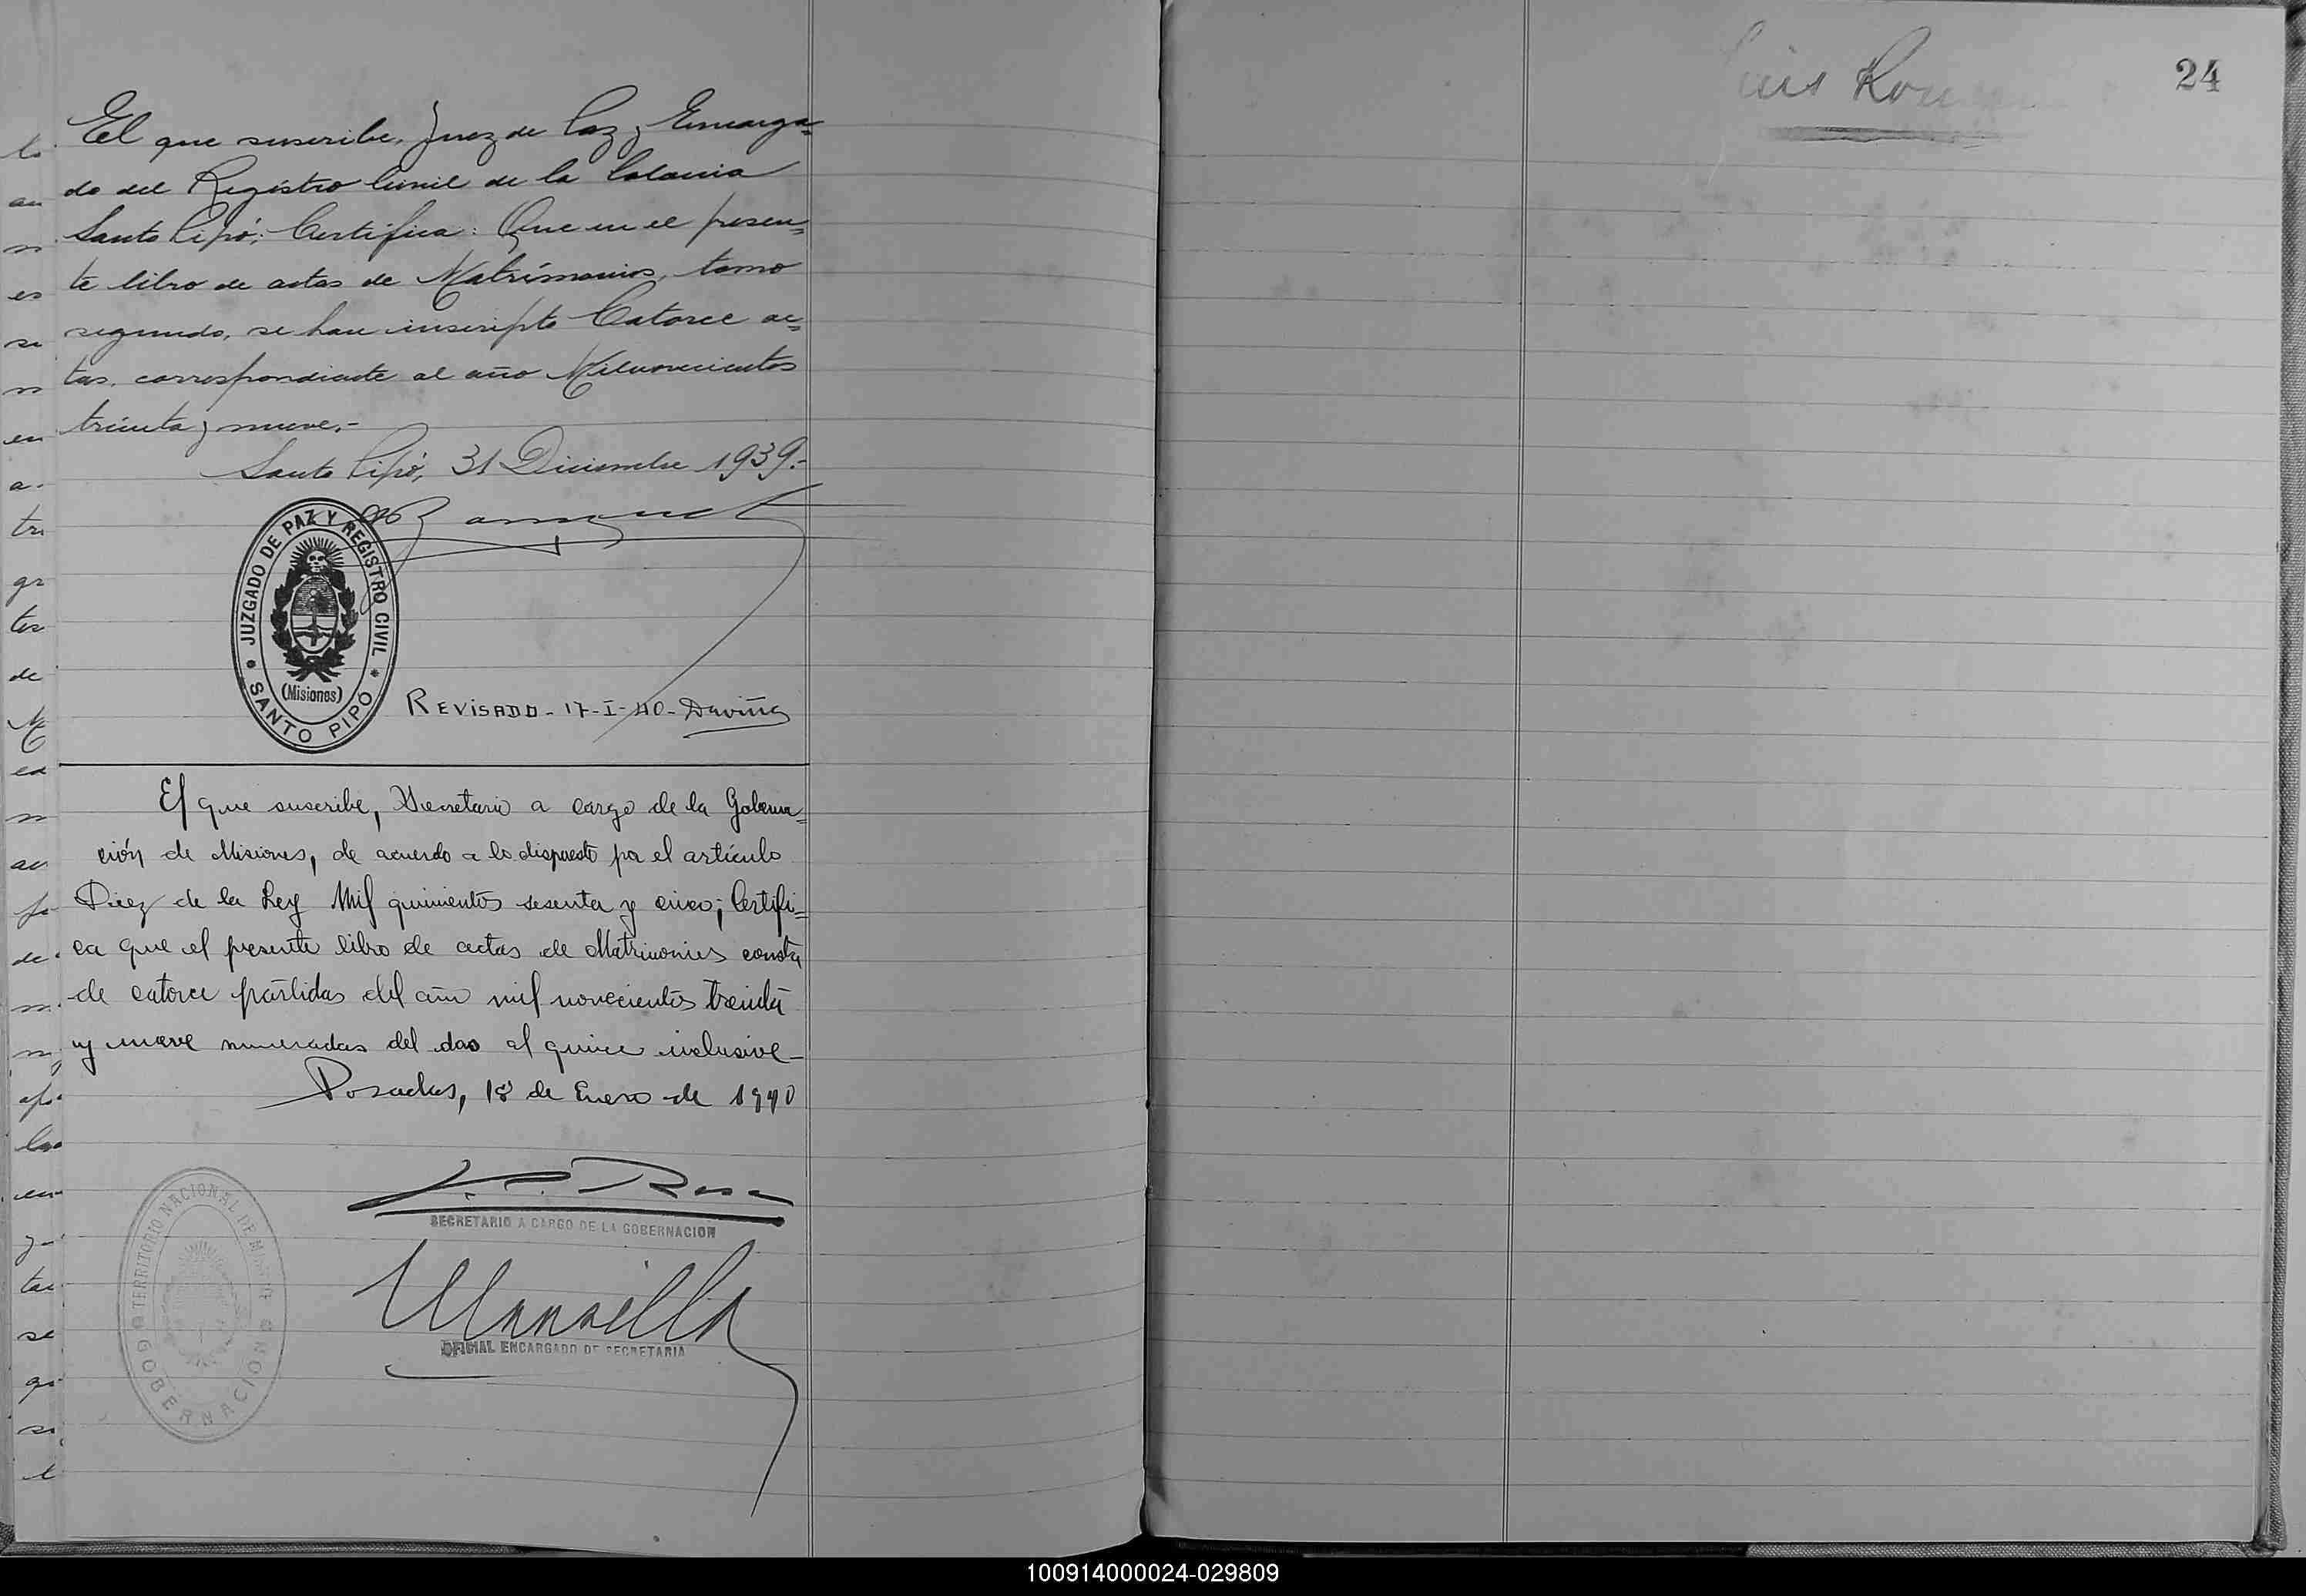 El que suscribe, Juez de Paz y Encarga=
do del Registro Civil de la Colonia
Santo Pipó; Certifica: Que en el presen=
te libro de actas de Matrimonios, tomo
segundo, se han inscripto Catorce ac=
tas, correspondiente al año Milnovecientos
treinta y nueve.-
Santo Pipó, 31 Diciembre 1939.-
JUZGADO DE PAZ Y REGISTRO CIVIL
(Misiones)
SANTO PIPÓ
REVISADO - 17-I-40 - Daviña
El que suscribe, Secretario a cargo de la Goberna=
ción de Misiones, de acuerdo a lo dispuesto por el artículo
Diez de la Ley Mil quinientos sesenta y cinco; Certifi=
ca que el presente libro de actas de Matrimonios consta
de catorce partidas del año mil novecientos treinta
y nueve numeradas del dos al quince inclusive-
Posadas, 18 de Enero de 1940
SECRETARIO A CARGO DE LA GOBERNACION
Mansilla
OFICIAL ENCARGADO DE SECRETARIA
TERRITORIO NACIONAL DE MISIONES
GOBERNACION
to
au
n
es
se
n
en
a
tri
gr
de
M
n
de
n
en
y
se
24
Luis
100914000024-029809